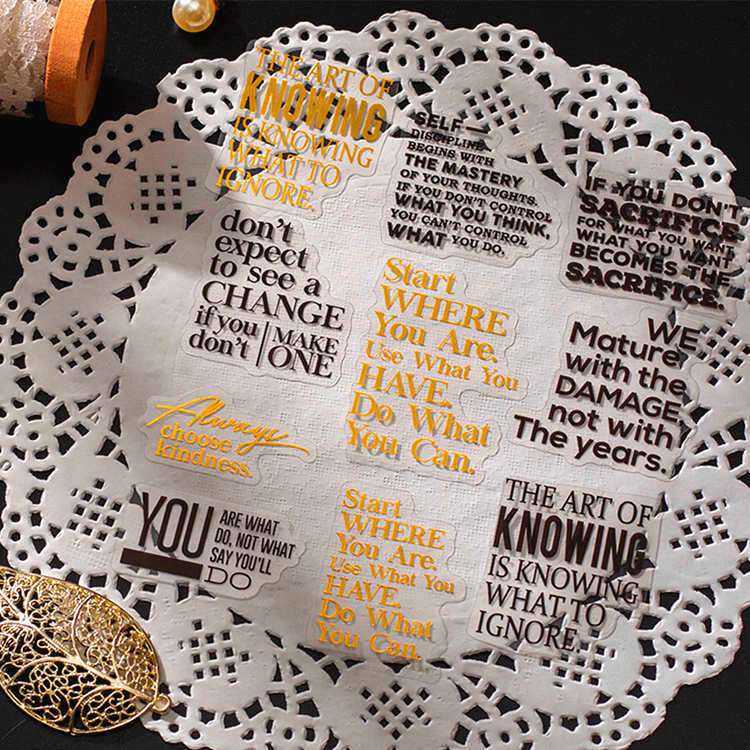 THE ART OF
KNOWING
IS KNOWING
WHAT TO
IGNORE.
SELF—
DISCIPLINE
BEGINS WITH
THE MASTERY
OF YOUR THOUGHTS.
IF YOU DON'T CONTROL
WHAT YOU THINK,
YOU CAN'T CONTROL
WHAT YOU DO.
IF YOU DON'T
SACRIFICE
FOR WHAT YOU WANT,
WHAT YOU WANT
BECOMES THE
SACRIFICE.
don't
expect
to see a
CHANGE
if you
don't
MAKE
ONE
Start
WHERE
You Are.
Use What You
HAVE.
Do What
You Can.
WE
Mature
with the
DAMAGE,
not with
The years.
Always
choose
kindness.
YOU
ARE WHAT
DO, NOT WHAT
SAY YOU'LL
DO
Start
WHERE
You Are.
Use What You
HAVE.
Do What
You Can.
THE ART OF
KNOWING
IS KNOWING
WHAT TO
IGNORE.